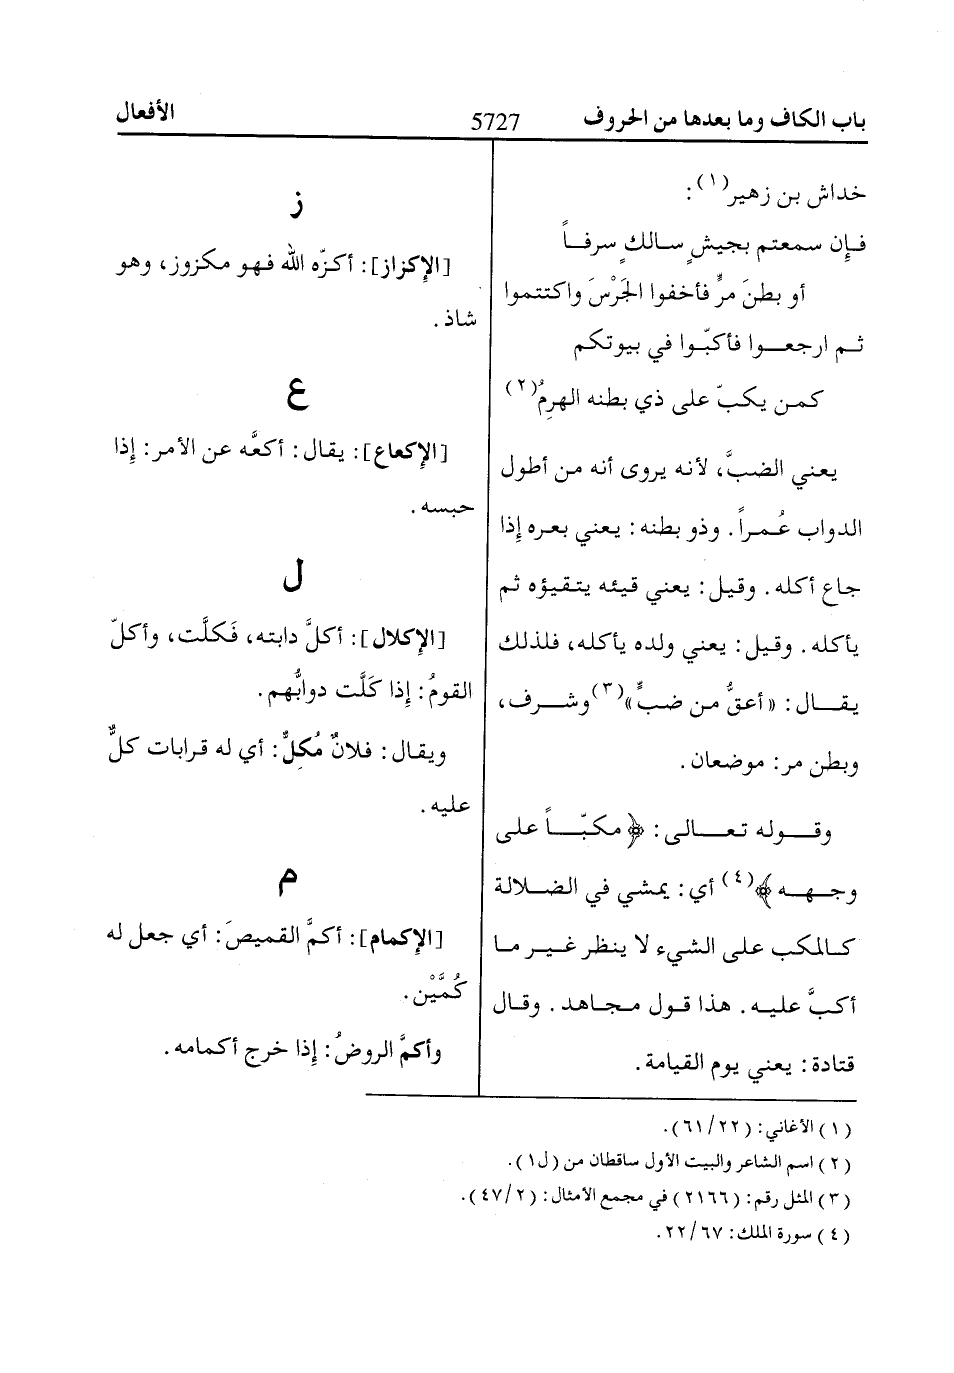 باب الكاف وما بعدها من الحروف
5727
الأفعال
خداش بن زهير(١):
فإن سمعتم بجيشٍ سالكٍ سرفاً
أو بطنَ مرٍّ فأخفوا الجَرْسَ واكتتموا
ثم ارجعوا فأكبّوا في بيوتكم
كمن يكبّ على ذي بطنه الهرِمُ(٢)
يعني الضبَّ، لأنه يروى أنه من أطول
الدواب عُمراً. وذو بطنه: يعني بعره إذا
جاع أكله. وقيل: يعني قيئه يتقيؤه ثم
يأكله. وقيل: يعني ولده يأكله، فلذلك
يقال: «أعقُّ من ضبٍّ»(٣) وشرف،
وبطن مر: موضعان.
وقوله تعالى: ﴿مكبّاً على
وجهه﴾(٤) أي: يمشي في الضلالة
كالمكب على الشيء لا ينظر غير ما
أكبَّ عليه. هذا قول مجاهد. وقال
قتادة: يعني يوم القيامة.
ز
[الإكزاز]: أكزّه الله فهو مكزوز، وهو
شاذ.
ع
[الإكعاع]: يقال: أكعَّه عن الأمر: إذا
حبسه.
ل
[الإكلال]: أكلَّ دابته، فَكلَّت، وأكلّ
القومُ: إذا كَلَّت دوابُّهم.
ويقال: فلانٌ مُكِلٌّ: أي له قرابات كلٌّ
عليه.
م
[الإكمام]: أكمَّ القميصَ: أي جعل له
كُمَّيْن.
وأكمَّ الروضُ: إذا خرج أكمامه.
(١) الأغاني: (٦١/٢٢).
(٢) اسم الشاعر والبيت الأول ساقطان من (ل١).
(٣) المثل رقم: (٢١٦٦) في مجمع الأمثال: (٤٧/٢).
(٤) سورة الملك: ٢٢/٦٧.